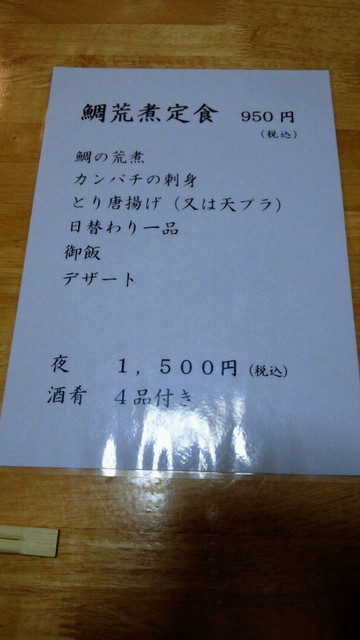 鯛荒煮定食 950円
(税込)
鯛の荒煮
カンパチの刺身
とり唐揚げ(又は天プラ)
日替わり一品
御飯
デザート
夜 1,500円(税込)
酒肴 4品付き